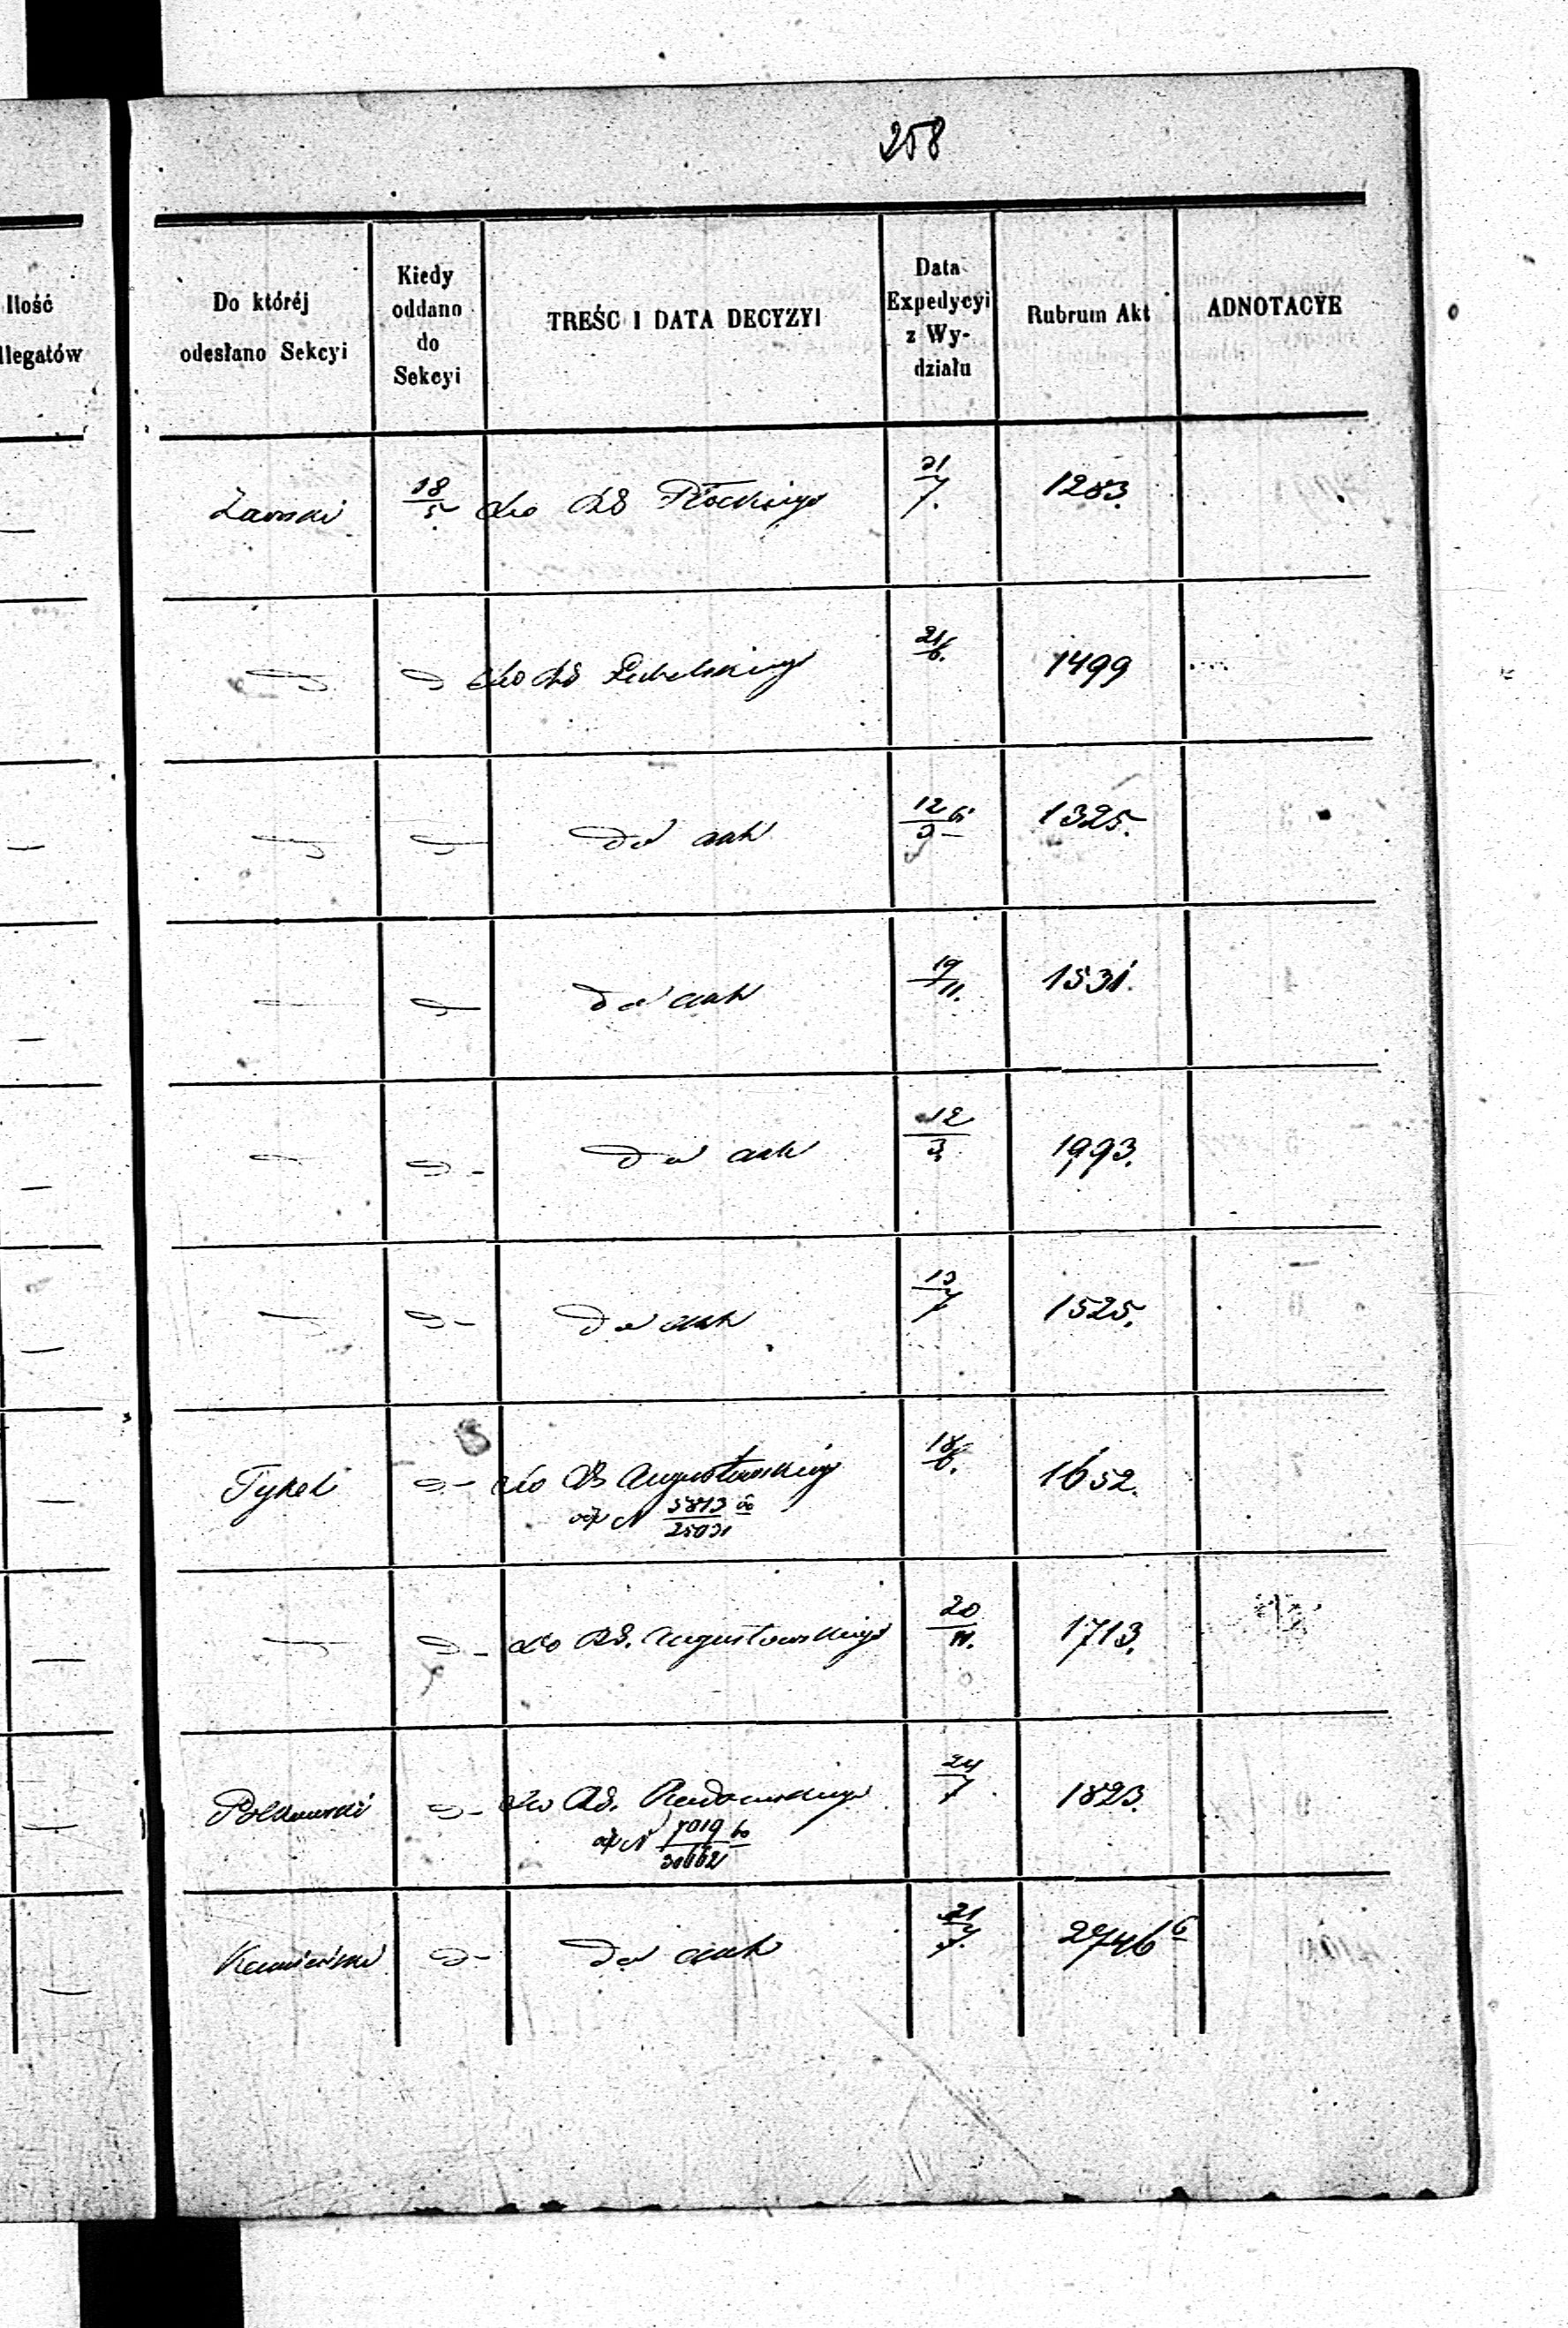 258
Ilość
llegatów
Do któréj
odesłano Sekcyi
Kiedy
oddano
do
Sekcyi
TREŚC I DATA DECYZYI
Data
Expedycyi
z Wy-
działu
Rubrum Akt
ADNOTACYE
18/5 do RG Płockiego 21/7. 1283.
do RG Lubelskiego 21/6. 1499
do akt 12/9 1325.
do akt 19/11. 1531.
do akt 12/3 1993.
do akt 13/7 1525.
Tykel do RG Augustowskiego 18/6. 1652.
N 5813/25031
do RG. Augustowskiego 20/11. 1713.
do RG. Radomskiego 24/7 1823.
N 7019/30662
Kamiński do akt 21/7. 2746